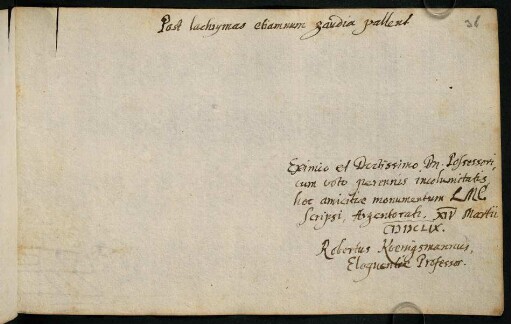 Post lachrymas etiamnum gaudia pallent
36
Eximio et Doctissimo Dn. Possessori,
cum voto perennis incolumitatis
hoc amicitiae monumentum LMQ
scripsi, Argentorati, XIV Martii
CIↃIↃCLIX.
Robertus Koenigsmannus,
Eloquentiae Professor.